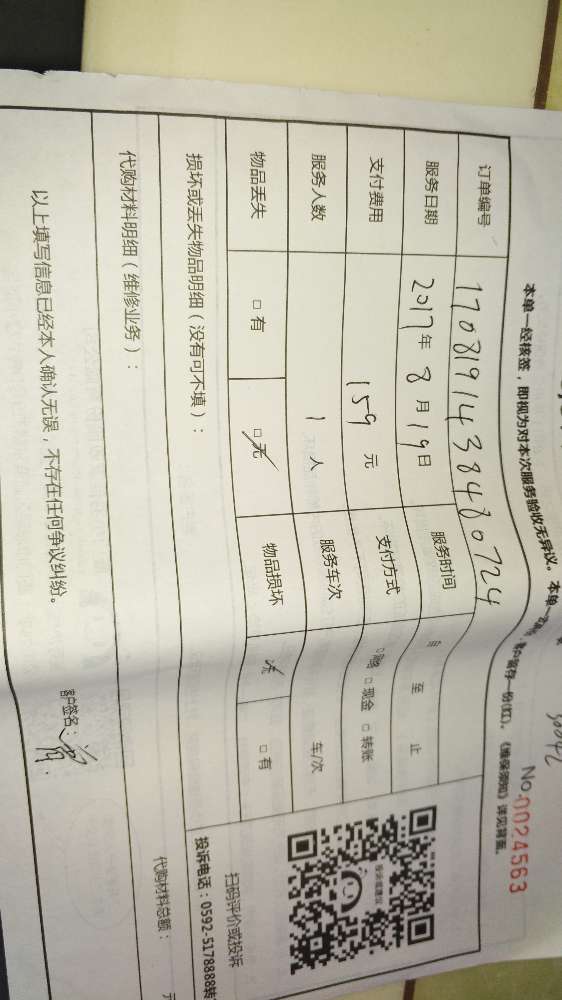 本单一经核签，即视为对本次服务验收无异议。本单一式
客户留存一份(红)。《维保须知》详见背面。
No.0024563
订单编号 1708191438480724
服务日期 2017年8月19日 服务时间 自 至 止
支付费用 159元 支付方式 □ □现金 □转账
服务人数 1人 服务车次 车/次
物品丢失 □有 □无 物品损坏 □无 □有
损坏或丢失物品明细（没有可不填）：
代购材料明细（维修业务）：
代购材料总额： 元
扫码评价或投诉
投诉电话：0592-5178888转
以上填写信息已经本人确认无误，不存在任何争议纠纷。
客户签名：